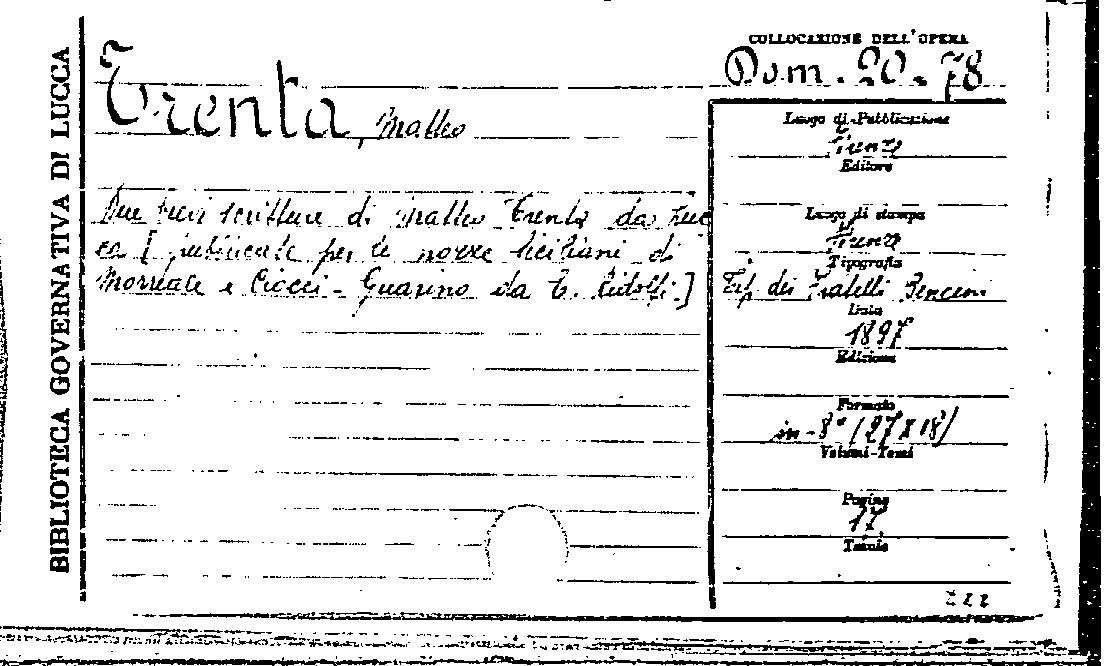 BIBLIOTECA GOVERNATIVA DI LUCCA
COLLOCAZIONE DELL'OPERA
Dom. 20. 78
Trenta, Matteo
Due brevi scritture di Matteo Trenta da Luc
ca [pubblicate per le nozze Siciliani di
Morreale e Ciocci-Guarino da E. Ridolfi.]
Luogo di Pubblicazione
Firenze
Editore
Luogo di stampa
Firenze
Tipografia
Tip. dei Fratelli Bencini
Data
1897
Edizione
Formato
in-8° (27 x 18)
Volumi-Tomi
Pagine
17
Tavole